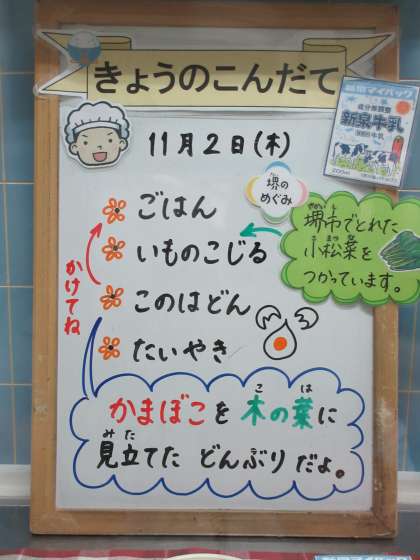 きょうのこんだて
11月2日(木)
ごはん
いものこじる
このはどん
たいやき
かけてね
堺の
めぐみ
堺市でとれた
小松菜を
つかっています。
かまぼこを木の葉に
見立てた どんぶりだよ。
新泉牛乳
200ml